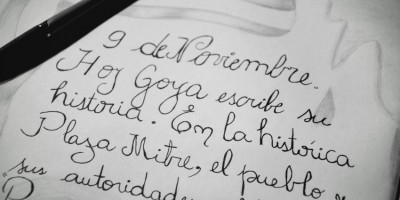 9 de Noviembre.
Hoy Goya escribe su
historia. En la histórica
Plaza Mitre, el pueblo y
sus autoridades